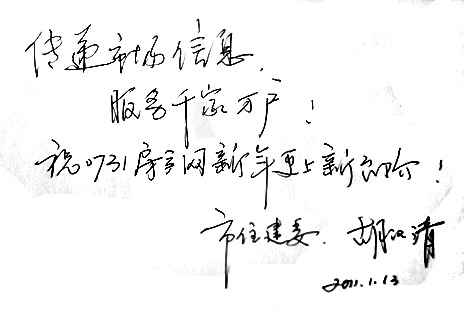 传递市场信息,
服务千家万户!
祝0731房产网新年更上新台阶!
市住建委. 胡汉清
2011.1.13